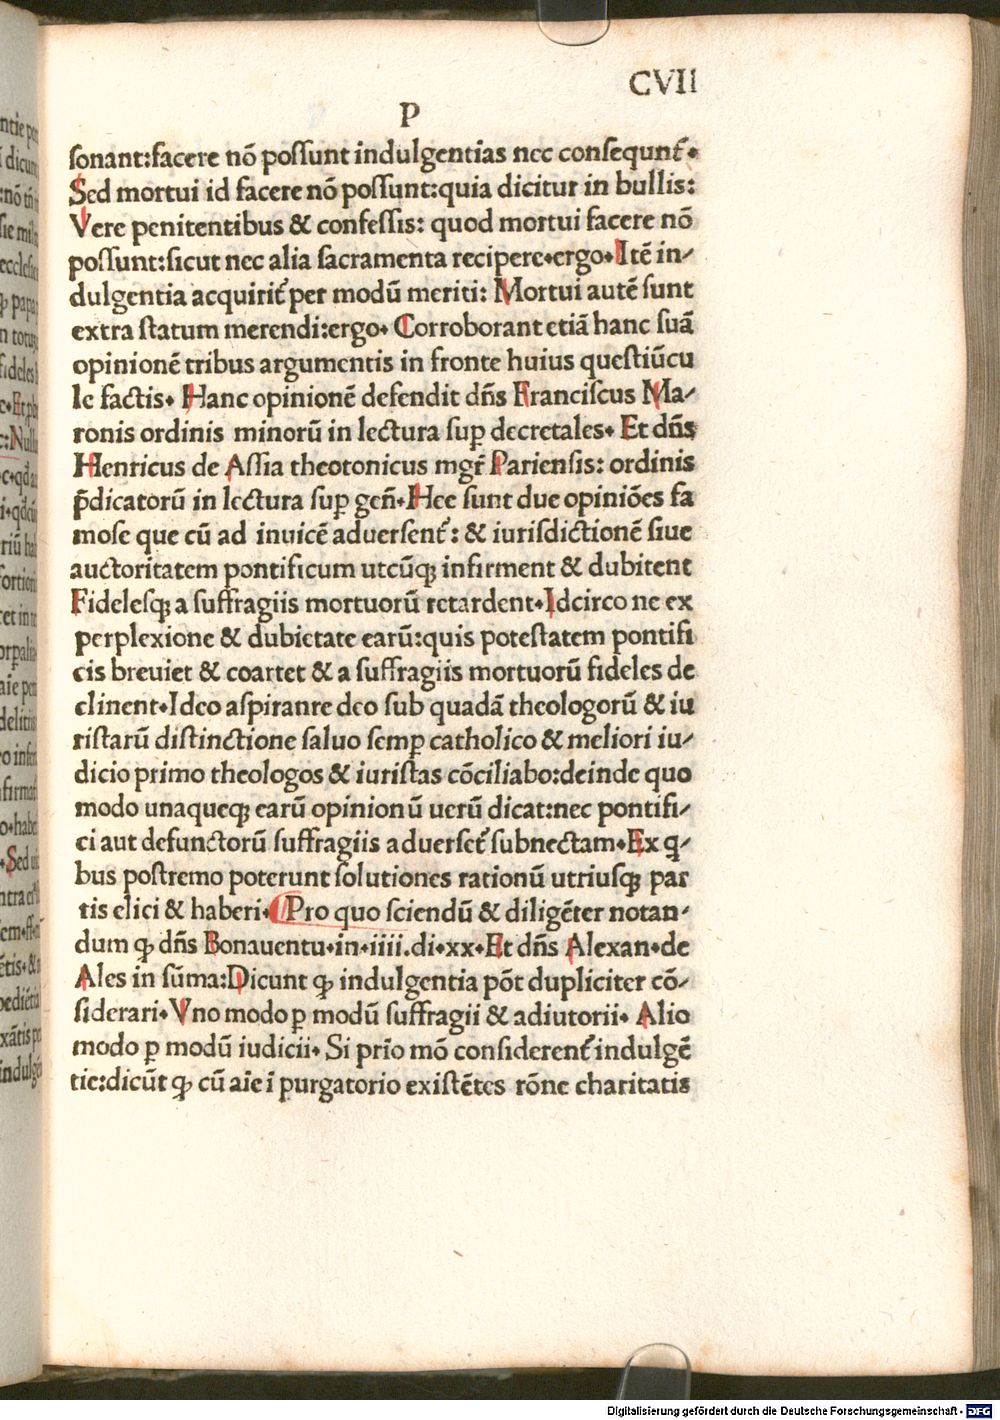 CVII
P
sonant:facere nõ possunt indulgentias nec consequnt᷑.
Sed mortui id facere nõ possunt:quia dicitur in bullis:
Vere penitentibus & confessis: quod mortui facere nõ
possunt:sicut nec alia sacramenta recipere.ergo.Itẽ in/
dulgentia acquirit᷑ per modũ meriti: Mortui autẽ sunt
extra statum merendi:ergo. Corroborant etiã hanc suã
opinionẽ tribus argumentis in fronte huius questiũcu
le factis. Hanc opinionẽ defendit dñs Franciscus Ma/
ronis ordinis minorũ in lectura suꝑ decretales. Et dñs
Henricus de Assia theotonicus mgr̃ Pariensis: ordinis
p̃dicatorũ in lectura suꝑ geñ.Hee sunt due opiniões fa
mose que cũ ad inuicẽ aduersent᷑: & iurisdictionẽ siue
auctoritatem pontificum utcũqꝫ infirment & dubitent
Fidelesqꝫ a suffragiis mortuorũ retardent.Idcirco ne ex
perplexione & dubietate earũ:quis potestatem pontifi
cis breuiet & coartet & a suffragiis mortuorũ fideles de
clinent.Ideo aspiranre deo sub quadã theologorũ & iu
ristarũ distinctione saluo semꝑ catholico & meliori iu/
dicio primo theologos & iuristas cõciliabo:deinde quo
modo unaqueqꝫ earũ opinionũ uerũ dicat:nec pontifi/
ci aut defunctorũ suffragiis aduerset᷑ subnectam.Ex q̃/
bus postremo poterunt solutiones rationũ utriusqꝫ par
tis elici & haberi. Pro quo sciendũ & diligẽter notan/
dum ꝙ dñs Bonauentu.in.iiii.di.xx.Et dñs Alexan.de
Ales in sũma:Dicunt ꝙ indulgentia põt dupliciter cõ/
siderari.Vno modo ꝑ modũ suffragii & adiutorii. Alio
modo ꝑ modũ iudicii. Si prĩo mõ considerent᷑ indulgẽ
tie:dicũt ꝙ cũ aĩe ĩ purgatorio existẽtes rõne charitatis
Digitalisierung gefördert durch die Deutsche Forschungsgemeinschaft - DFG